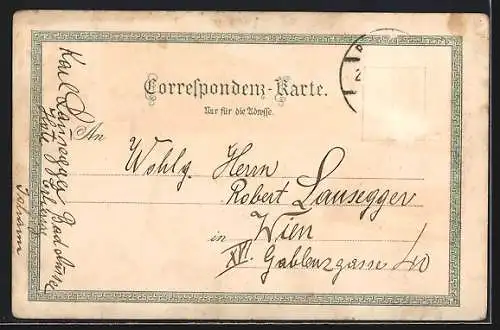 Correspondenz-Karte.
Nur für die Adresse.
An
Wohlg. Herrn
Robert Lausegger
in Wien
XVI. Gablenzgasse 40
Karl Lausegger